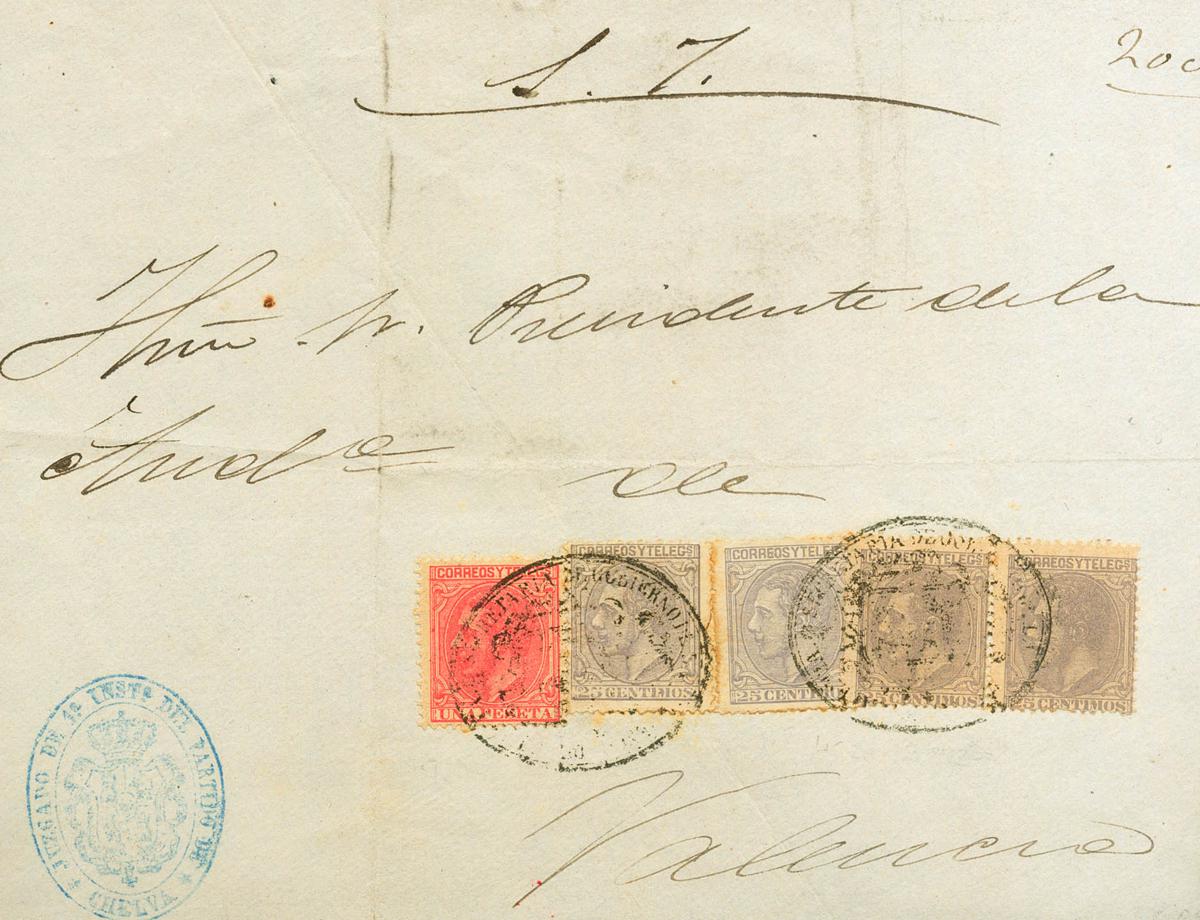 S. J.
200
Ilmo. Sr. Presidente de la
Audª de
CORREOS Y TELEGS
UNA PESETA
CORREOS Y TELEGS
25 CENTIMOS
CORREOS Y TELEGS
25 CENTIMO
25 CENTIMOS
CORREOS Y TELEGS
25 CENTIMOS
SECRETARIA DE GOBIERNO
Valencia
JUZGADO DE 1ª INSTª DEL PARTIDO DE
CHELVA